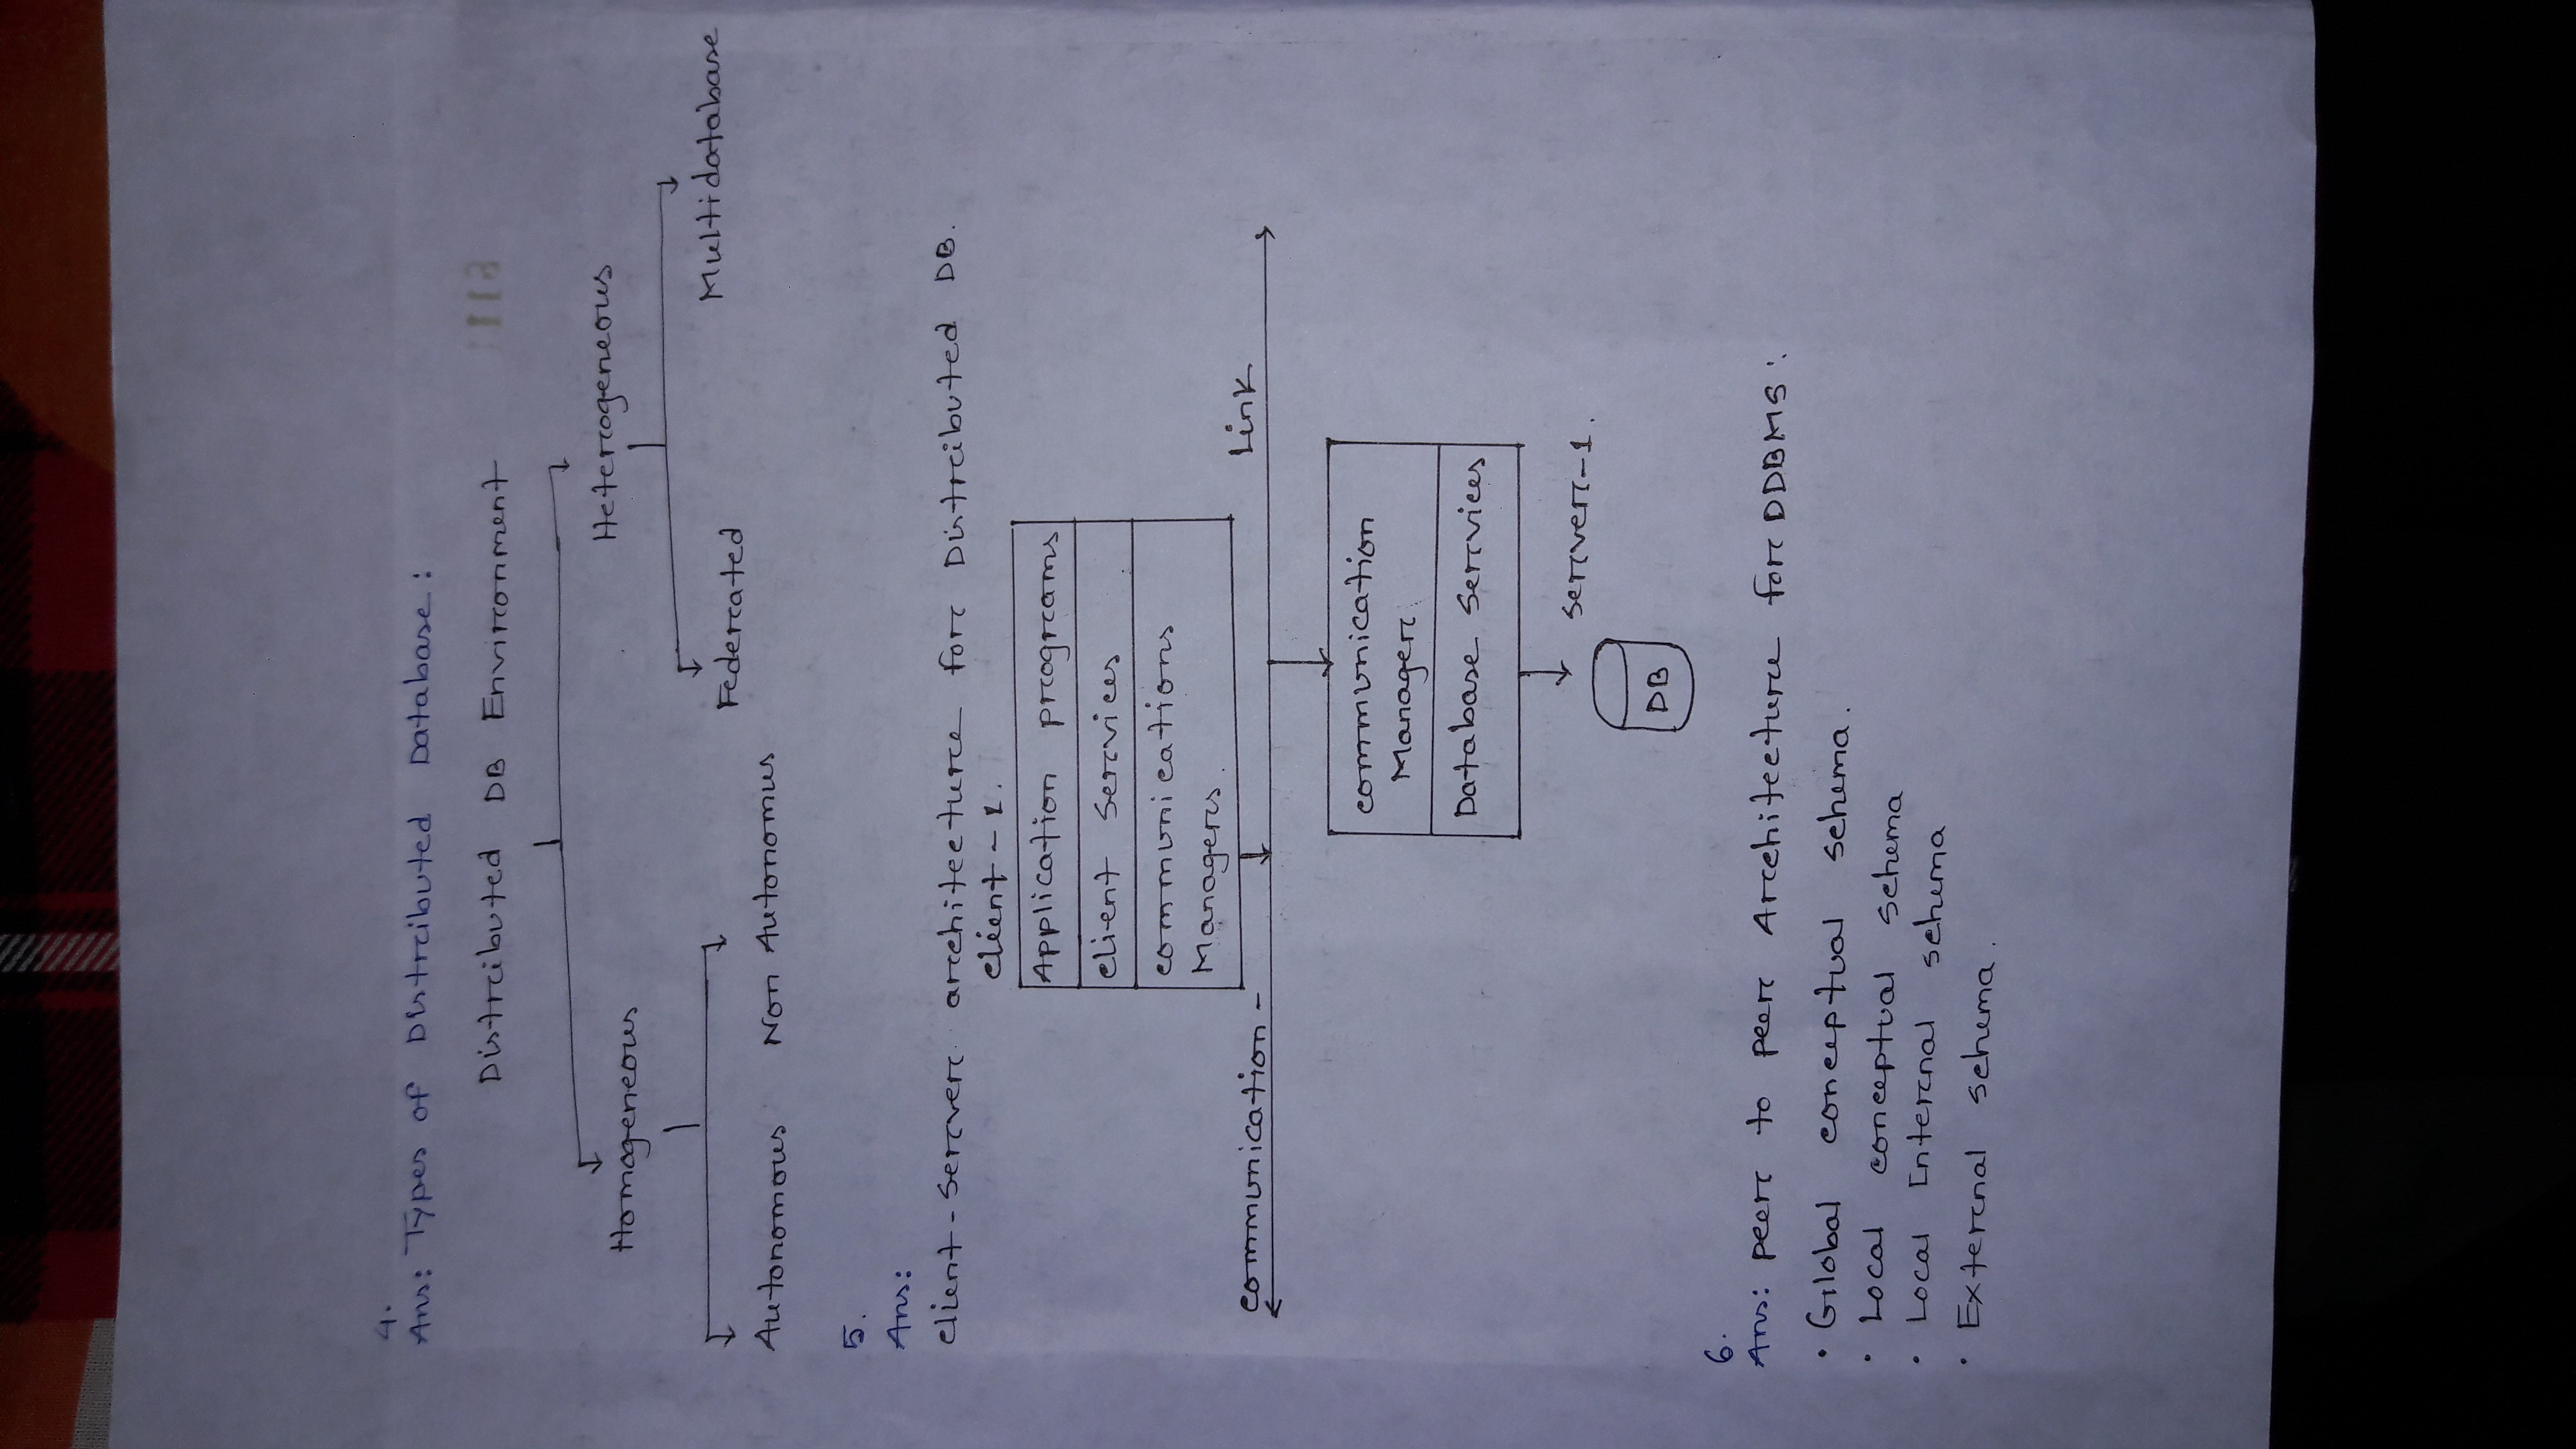 4.
Ans: Types of Distributed Database:
Distributed DB Environment
Homogeneous Heterogeneous
Autonomous Non Autonomus Federated Multidatabase
5.
Ans:
client-Server architecture for Distributed DB.
client-1.
Application programs
client services
communications
Managers.
communication - Link
communication
Manager
Database services
server-1.
DB
6.
Ans: peer to peer Architecture for DDBMS:
• Global conceptual schema.
• Local conceptual schema
• Local Internal schema
• External schema.